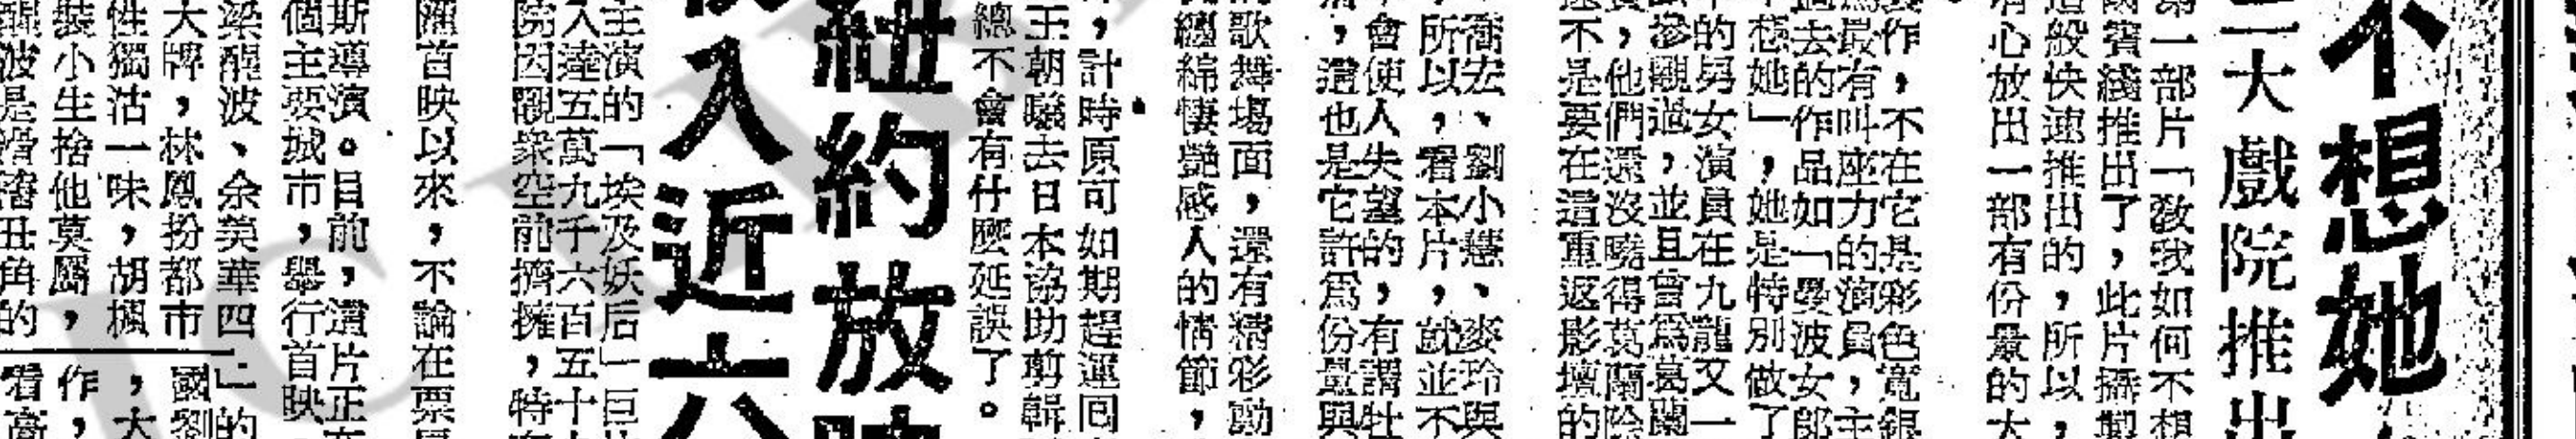 不想她
三大戲院推出
第一部片「教我如何不想
國賓綫推出了，此片攝製
這般快速推出的，所以，
有心放出一部有份量的大
製作，不在它是彩色寬銀
爲最有叫座力的演員，主
過去的作品如「曼波女郎
不想她」，她是特別做了
中的男女演員在九龍又一
參觀過，並且曾爲葛蘭
，他們還沒曉得葛蘭除
不是要在這重返影壇的
喬宏、劉小慧、麥玲與
所以，看本片，就並不
會使人失望的，有謂牡
，這也是它許爲份量與
歌舞場面，還有精彩動
纏綿悽艷感人的情節，
，計時原可如期趕運囘
王朝曦去日本協助剪輯
總不會有什麼延誤了。
紐約放映
收入近六
主演的「埃及妖后」巨片
入達五萬九千六百五十
院因觀衆空前擠擁，特
匯首映以來，不論在票
斯導演。目前，這片正在
個主要城市，舉行首映
梁醒波、余美華四
大牌，林鳳扮都市
性獨沽一味，胡楓
裝小生捨他莫屬，
醒波是滑稽丑角的
」的
國劉
，大
作，
看高